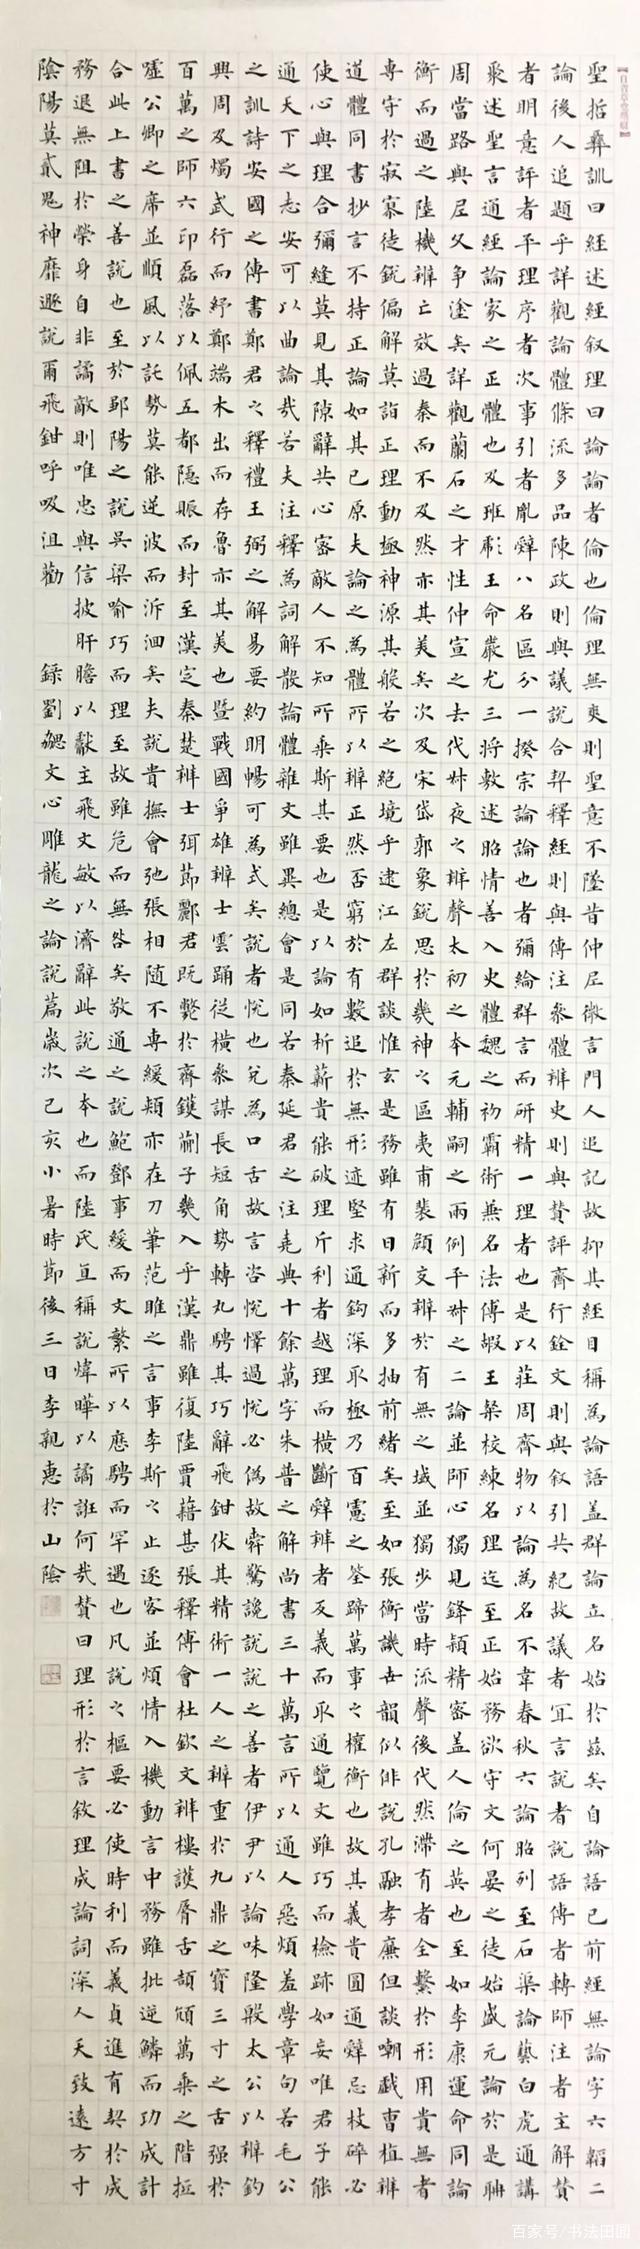 聖哲彝訓曰經述經敘理曰論論者倫也倫理無爽則聖意不墜昔仲尼微言門人追記故抑其經目稱為論語蓋群論立名始於茲矣自論語已前經無論字六韜二
論後人追題乎詳觀論體條流多品陳政則與議說合契釋經則與傳注參體辨史則與贊評齊行銓文則與敘引共紀故議者宜言說者說語傳者轉師注者主解贊
者明意評者平理序者次事引者胤辭八名區分一揆宗論論也者彌綸群言而研精一理者也是以莊周齊物以論為名不韋春秋六論昭列至石渠論藝白虎通講
聚述聖言通經論家之正體也及班彪王命嚴尤三將敷述昭情善入史體魏之初霸術兼名法傅嘏王粲校練名理迄至正始務欲守文何晏之徒始盛元論於是聃
周當路與尼父爭塗矣詳觀蘭石之才性仲宣之去代叔夜之辨聲太初之本元輔嗣之兩例平叔之二論並師心獨見鋒穎精密蓋人倫之英也至如李康運命同論
衡而過之陸機辨亡效過秦而不及然亦其美矣次及宋岱郭象銳思於幾神之區夷甫裴頠交辨於有無之域並獨步當時流聲後代然滯有者全繫於形用貴無者
專守於寂寥徒銳偏解莫詣正理動極神源其般若之絕境乎逮江左群談惟玄是務雖有日新而多抽前緒矣至如張衡譏世韻似俳說孔融孝廉但談嘲戲曹植辨
道體同書抄言不持正論如其已原夫論之為體所以辨正然否窮於有數追於無形迹堅求通鉤深取極乃百慮之筌蹄萬事之權衡也故其義貴圓通辭忌枝碎必
使心與理合彌縫莫見其隙辭共心密敵人不知所乘斯其要也是以論如析薪貴能破理斤利者越理而橫斷辭辨者反義而取通覽文雖巧而檢跡如妄唯君子能
通天下之志安可以曲論哉若夫注釋為詞解散論體雜文雖異總會是同若秦延君之注堯典十餘萬字朱普之解尚書三十萬言所以通人惡煩羞學章句若毛公
之訓詩安國之傳書鄭君之釋禮王弼之解易要約明暢可為式矣說者悅也兌為口舌故言咨悅懌過悅必偽故舜驚讒說說之善者伊尹以論味隆殷太公以辨釣
興周及燭武行而紓鄭端木出而存魯亦其美也暨戰國爭雄辨士雲踊從橫參謀長短角勢轉丸騁其巧辭飛鉗伏其精術一人之辨重於九鼎之寶三寸之舌强於
百萬之師六印磊落以佩五都隱賑而封至漢定秦楚辨士弭節酈君既斃於齊鑊蒯子幾入乎漢鼎雖復陸賈藉甚張釋傅會杜欽文辨樓護脣舌頡頏萬乘之階抵
噓公卿之席並順風以託勢莫能逆波而泝洄矣夫說貴撫會弛張相隨不專緩頰亦在刀筆范雎之言事李斯之止逐客並煩情入機動言中務雖批逆鱗而功成計
合此上書之善說也至於鄒陽之說吳梁喻巧而理至故雖危而無咎矣敬通之說鮑鄧事緩而文繁所以歷騁而罕遇也凡說之樞要必使時利而義貞進有契於成
務退無阻於榮身自非譎敵則唯忠與信披肝膽以獻主飛文敏以濟辭此說之本也而陸氏直稱說煒曄以譎誑何哉贊曰理形於言敘理成論詞深人天致遠方寸
陰陽莫貳鬼神靡遯說爾飛鉗呼吸沮勸
錄劉勰文心雕龍之論說篇歲次己亥小暑時節後三日李親惠於山陰
百家号/书法田园